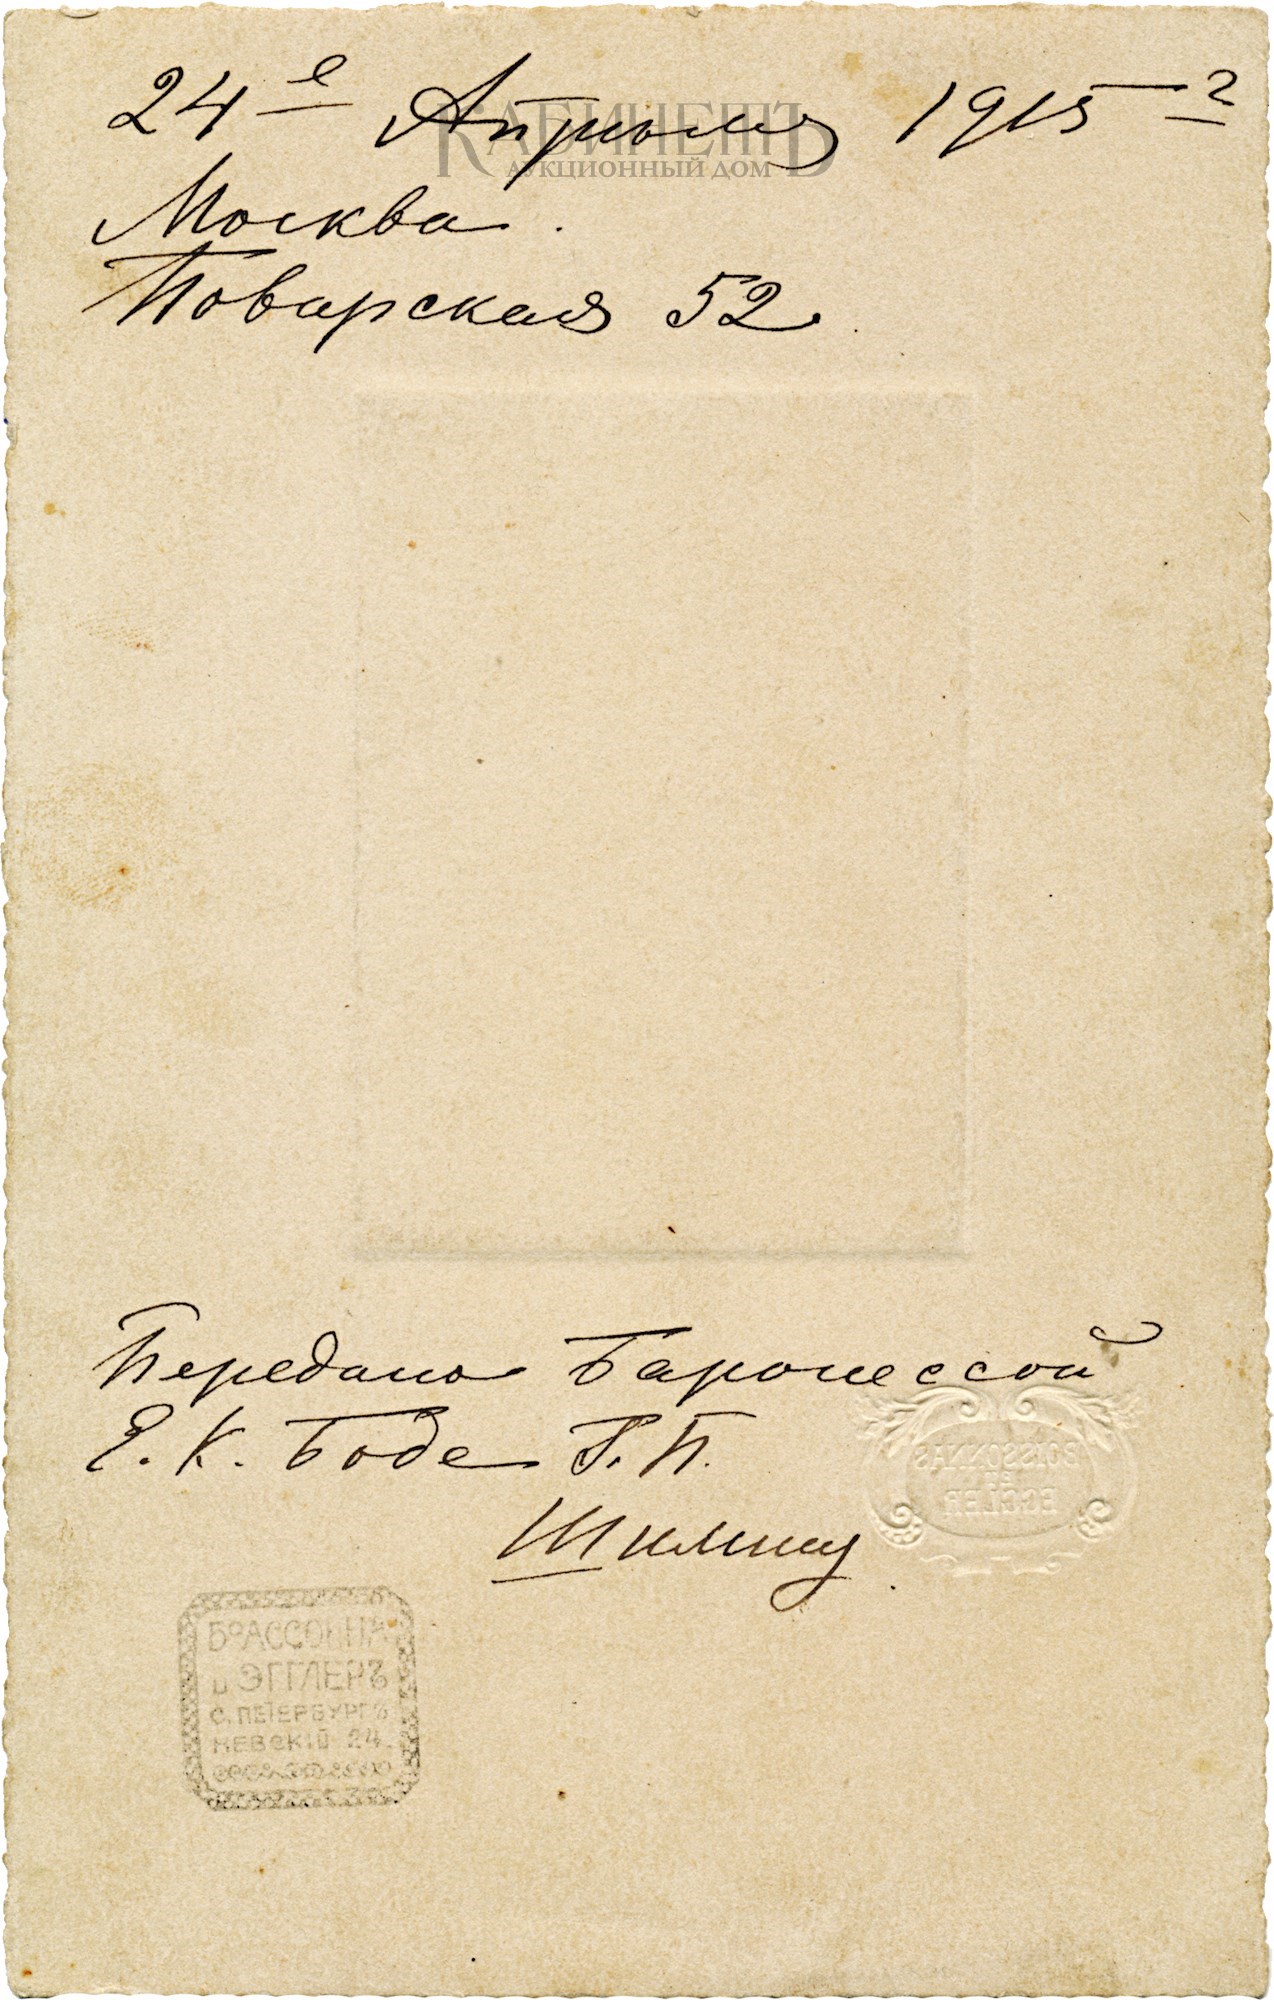 24е Апрѣля 1915 г
КАБИНЕТЪ
АУКЦИОННЫЙ ДОМ
Москва.
Поварская 52.
Передано Баронессой
Е. К. Боде Г. П.
BOISSONNAS
ET
EGGLER
Шилину.
БОАССОННА
и ЭГГЛЕРЪ
С. ПЕТЕРБУРГЪ
НЕВСКIЙ 24.